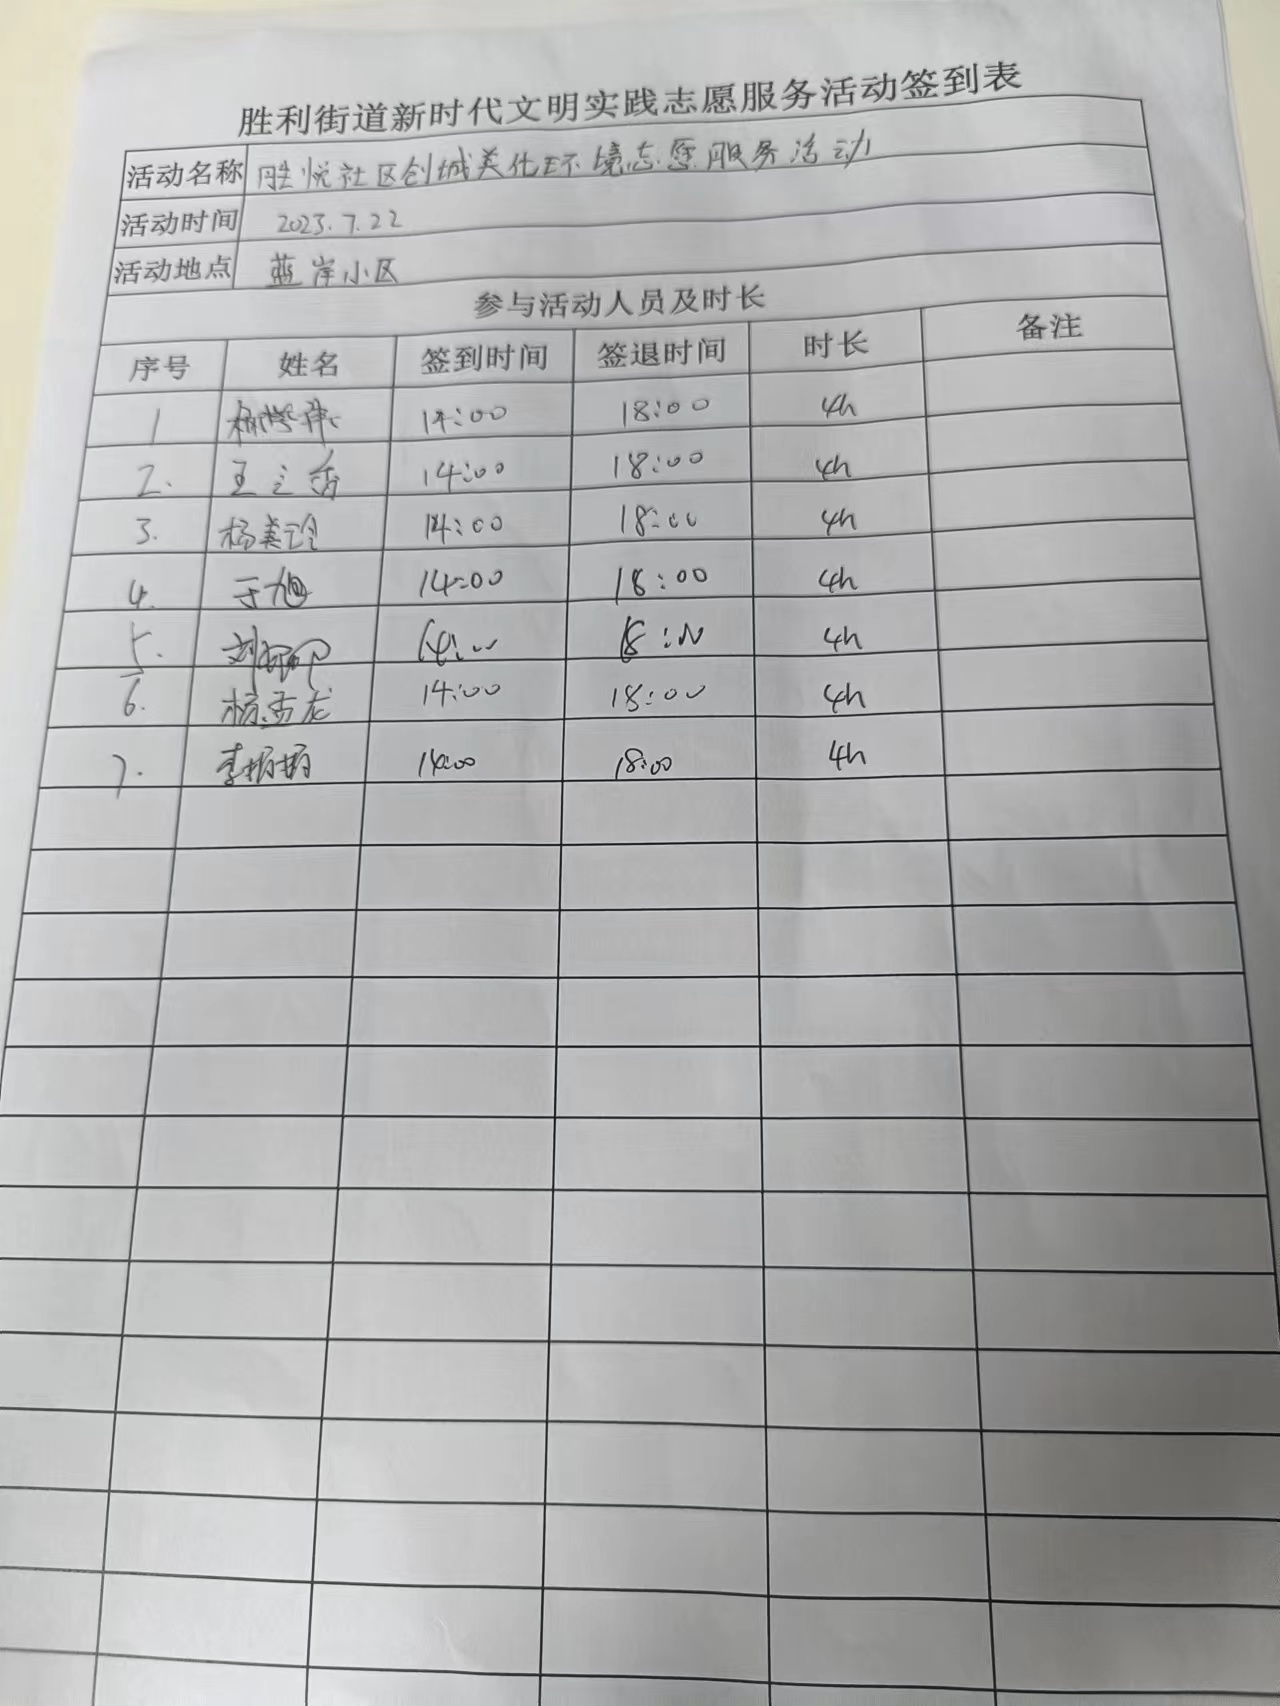 胜利街道新时代文明实践志愿服务活动签到表
活动名称 胜悦社区创城美化环境志愿服务活动
活动时间 2023.7.22
活动地点 蓝岸小区
参与活动人员及时长
序号 姓名 签到时间 签退时间 时长 备注
1 14:00 18:00 4h
2. 王之香 14:00 18:00 4h
3. 杨美玲 14:00 18:00 4h
4. 于旭 14:00 18:00 4h
5. 刘 14:00 18:00 4h
6. 杨孟龙 14:00 18:00 4h
7. 李 14:00 18:00 4h